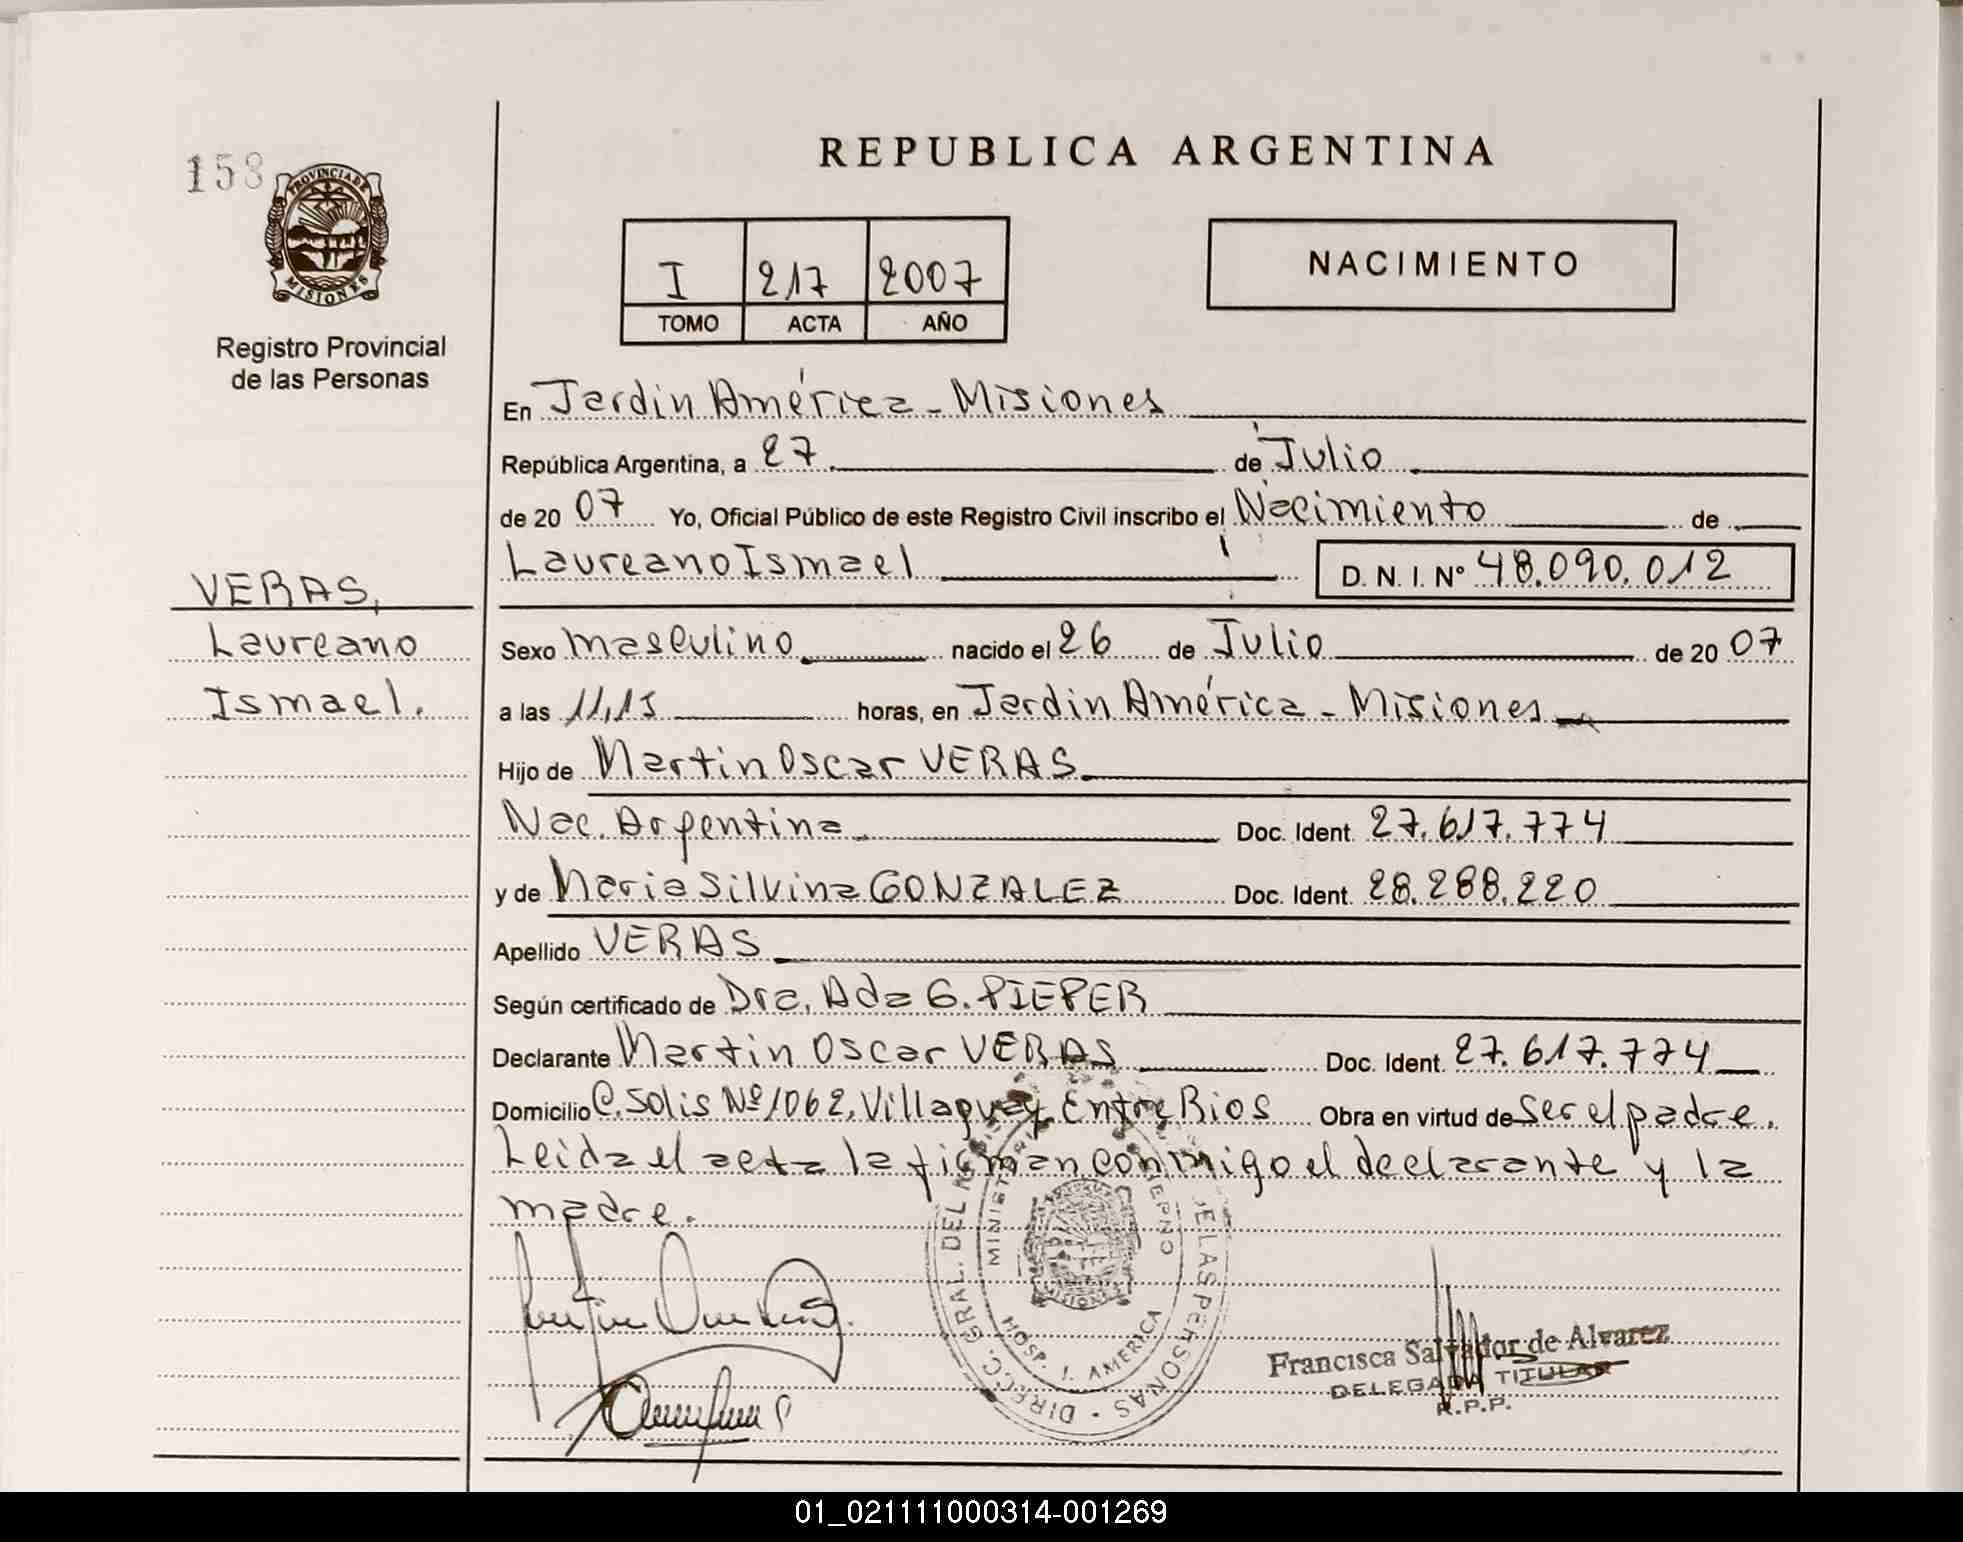 158
PROVINCIA DE
MISIONES
Registro Provincial
de las Personas
VERAS,
Laureano
Ismael.
REPUBLICA ARGENTINA
I 217 2007
TOMO ACTA AÑO
NACIMIENTO
En Jardin América - Misiones
República Argentina, a 27 de Julio
de 2007 Yo, Oficial Público de este Registro Civil inscribo el Nacimiento de
Laureano Ismael D. N. I. Nº 48.090.012
Sexo masculino nacido el 26 de Julio de 2007
a las 11,15 horas, en Jardin América - Misiones
Hijo de Martin Oscar VERAS
Nac. Argentina Doc. Ident. 27.617.774
y de Maria Silvina GONZALEZ Doc. Ident. 28.288.220
Apellido VERAS
Según certificado de Dra. Ada G. PIEPER
Declarante Martin Oscar VERAS Doc. Ident. 27.617.774
Domicilio C. Solis Nº 1062, Villaguay Entre Rios Obra en virtud de ser el padre.
Leida el acta la firman conmigo el declarante y la
madre.
DIRECC. GRAL. DEL DE LAS PERSONAS
HOSP. J. AMERICA
MISIONES
Francisca Salvador de Alvarez
DELEGADA TITULAR
R.P.P.
01_021111000314-001269